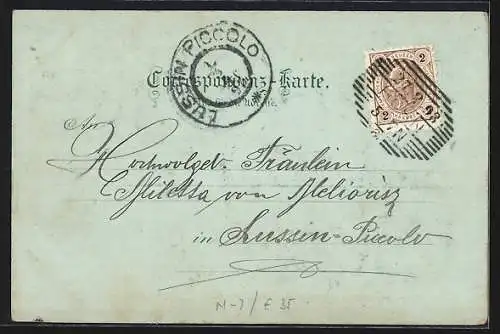 LUSSIN PICCOLO
2
Correspondenz-Karte.
2
An
Hochwolgeb. Fräulein
Miletta von Meliorisz
in Lussin-Piccolo
N-7/E 35